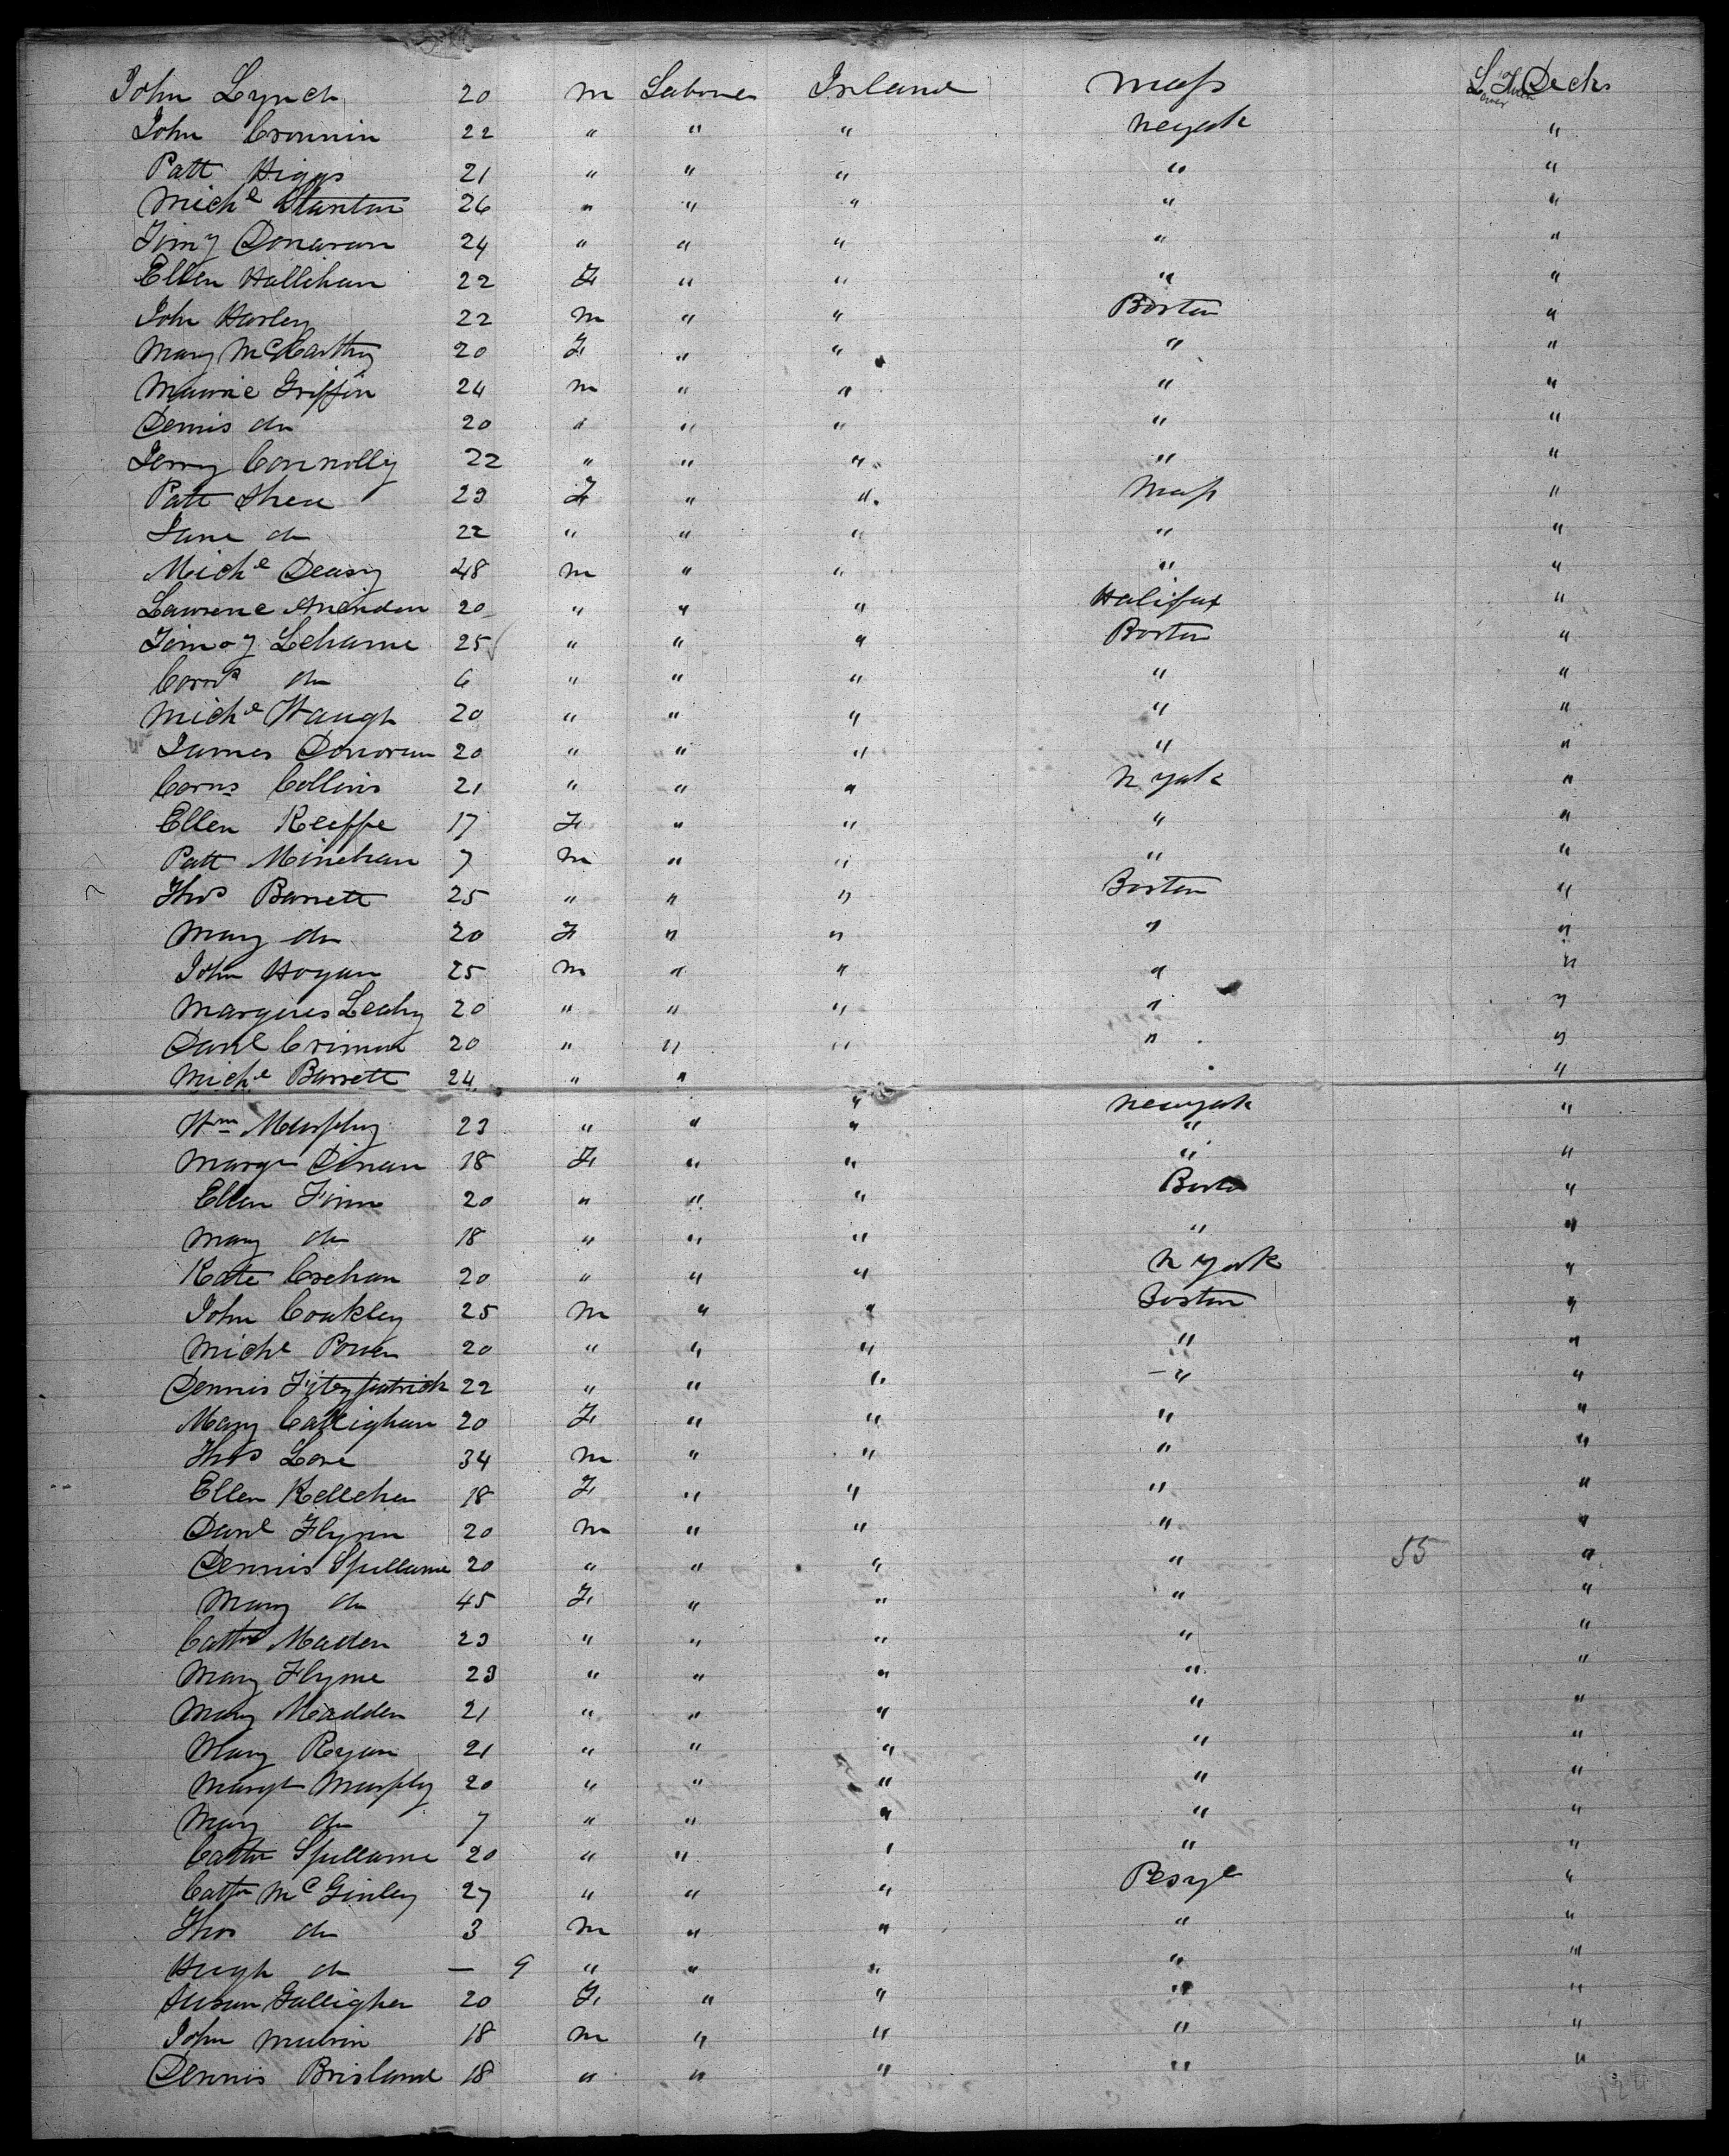 John Lynch 20 m Laborer Ireland Mass Lower Twen Decks
John Cronnin 22 " " " Neyork "
Patt Higgs 21 " " " " "
Michl Stanton 26 " " " " "
Timy Donavan 24 " " " " "
Ellen Hallihan 22 F " " " "
John Harley 22 m " " Boston "
Mary McCarthy 20 F " " " "
Maurice Griffin 24 m " " " "
Dennis do 20 " " " " "
Jerry Connolly 22 " " " " "
Patt Shea 23 F " " Mass "
Jane do 22 " " " " "
Michl Deasy 48 m " " " "
Lawrence 20 " " " Halifax "
Timoy Lehane 25 " " " Boston "
Corns do 6 " " " " "
Michl Waugh 20 " " " " "
James Donovan 20 " " " " "
Corns Collins 21 " " " N York "
Ellen Keeffe 17 F " " " "
Patt Minehan 7 m " " " "
Thos Barrett 25 " " " Boston "
Mary do 20 F " " " "
John Hogan 25 m " " " "
Leahy 20 " " " " "
Danl 20 " " " " "
Michl Barrett 24 " " " "
Wm Murphy 23 " " " Newyork "
Margt Dinan 18 F " " " "
Ellen Finn 20 " " " Bosto "
Mary do 18 " " " " "
Kate Crehan 20 " " " N York "
John Coakley 25 m " " Boston "
Michl Power 20 " " " " "
Dennis Fitzpatrick 22 " " " " "
Mary Callighan 20 F " " " "
Thos Lane 34 m " " " "
Ellen Kelleher 18 F " " " "
Danl Flynn 20 m " " " "
Dennis Spillane 20 " " " " 55 "
Mary do 45 F " " " "
Cathn Madden 23 " " " " "
Mary Flynne 23 " " " " "
Mary Madden 21 " " " " "
Mary Ryan 21 " " " " "
Margt Murphy 20 " " " " "
Mary do 7 " " " " "
Cathn Spillane 20 " " " " "
Cathn McGinley 27 " " " "
Thos do 3 m " " " "
Hugh do — 9 " " " " "
Susan Galligher 20 F " " " "
John 18 m " " " "
Dennis Brislane 18 " " " " "